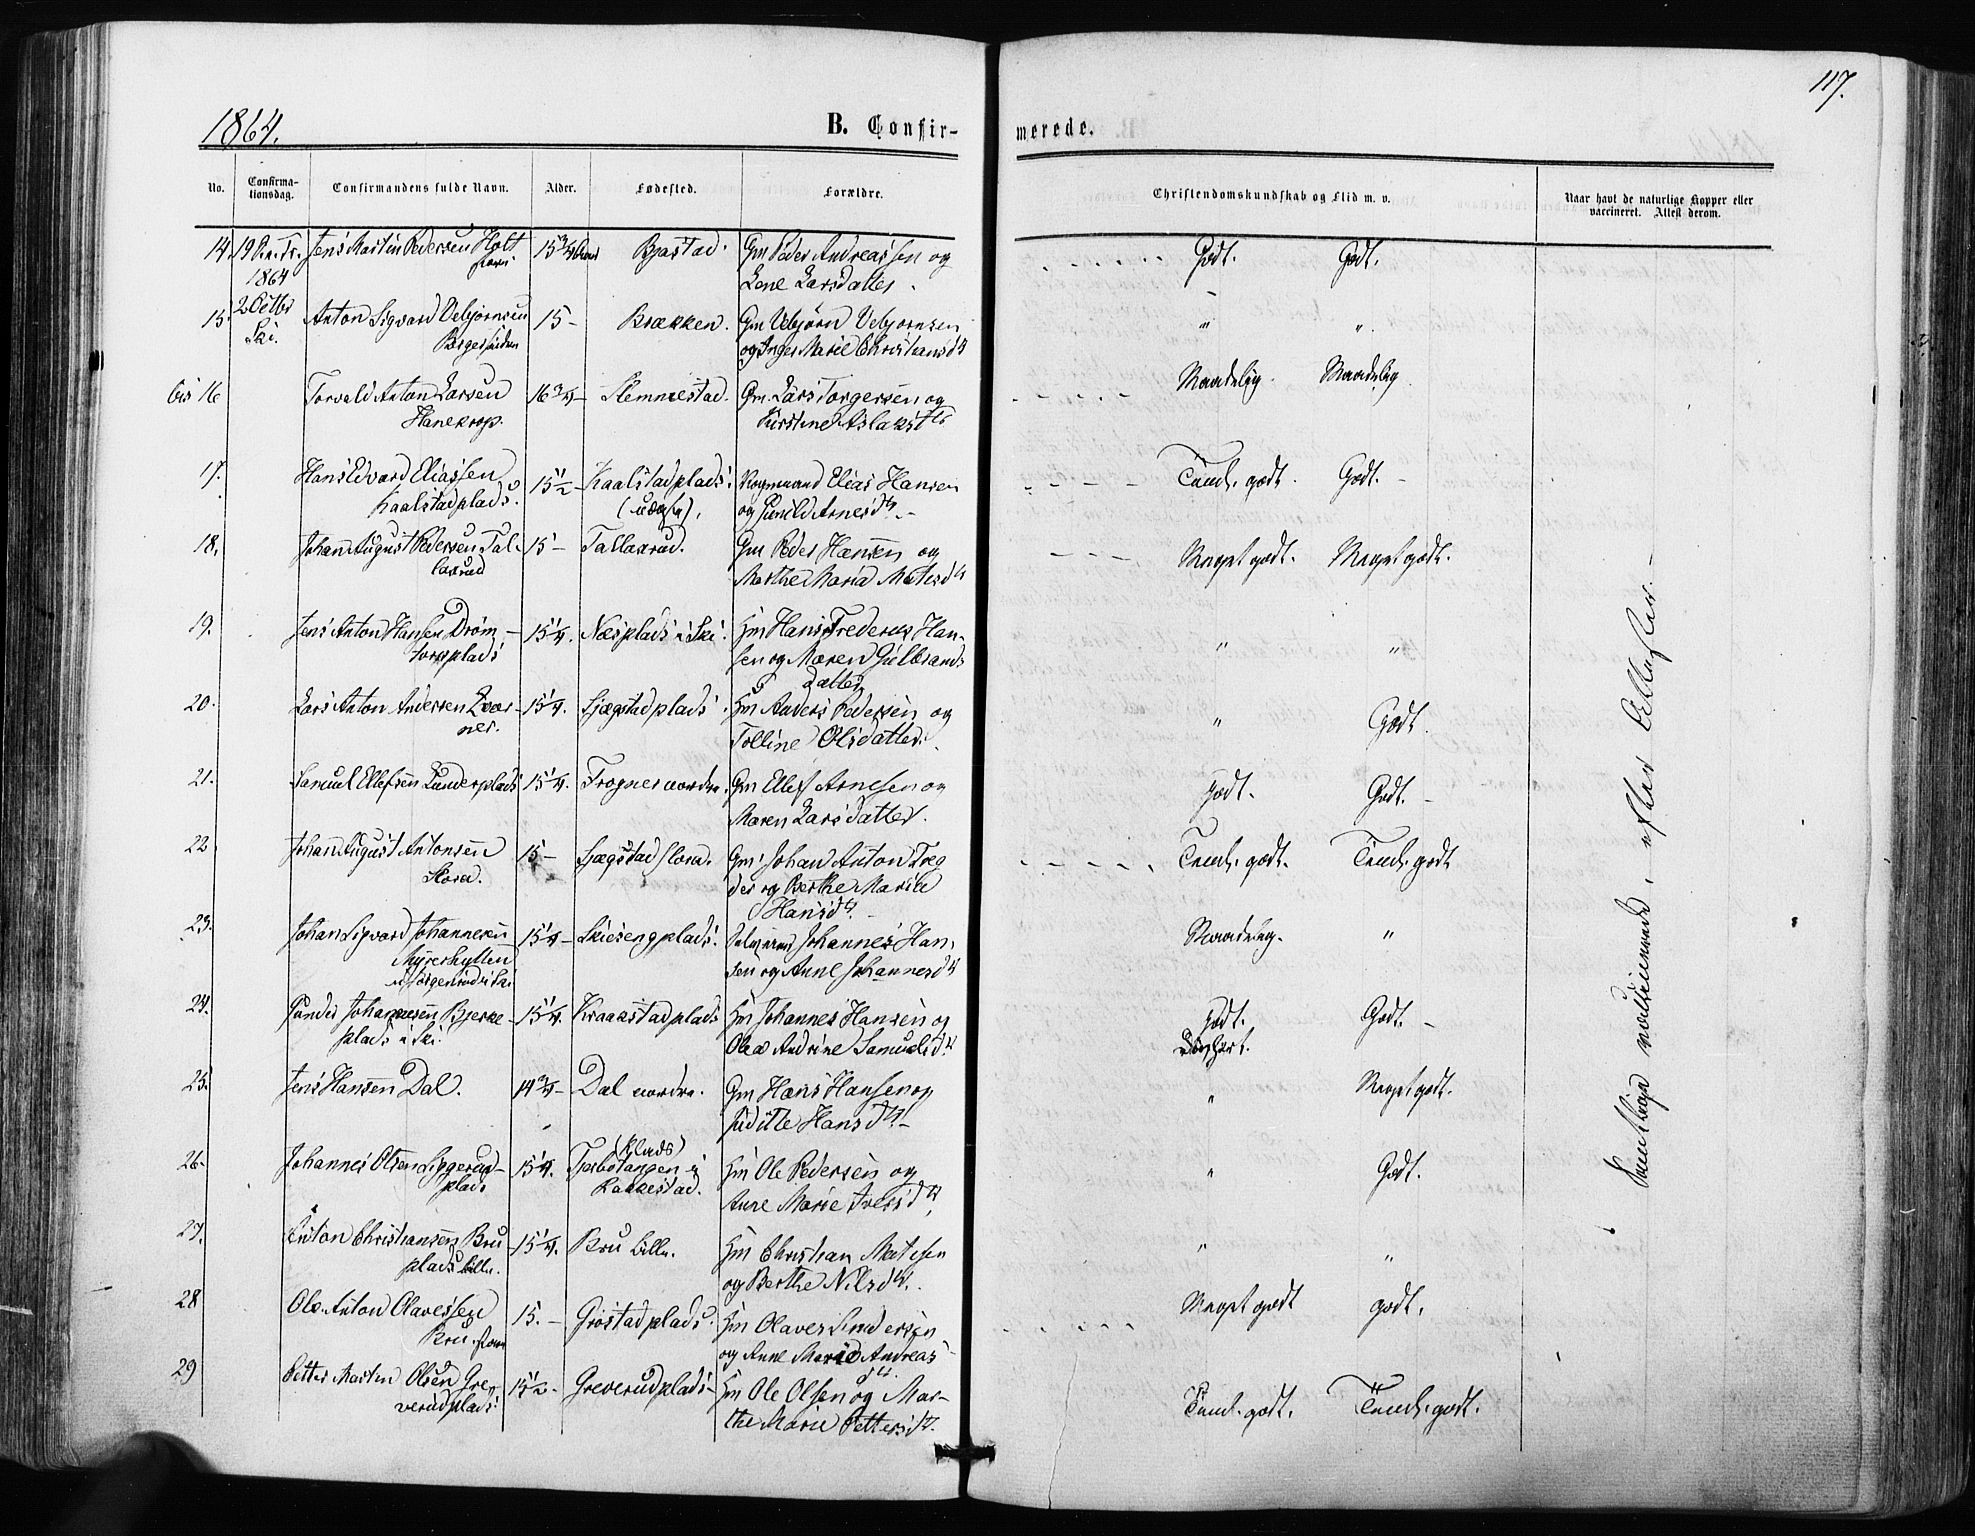 117.
1864.
B. Confir-
merede.
No.
Confirma-
tionsdag.
Confirmandens fulde Navn.
Alder.
Fødested.
Forældre.
Christendomskundskab og Flid m. v.
Naar havt de naturlige Kopper eller
vaccineret. Attest derom.
14. 19 1864 Jens Martin Pedersen Holt 15 3/4 Bjastad. Gm Peder Andreassen og
Lene Larsdatter. Godt. Godt.
15. 2 Octbr Ski. Anton Sigvard Vebjørnsen 15 - Brækken. Gm Vebjørn Vebjørnsen
og Inger Marie Christiansd " "
bis 16 Torvald Anton Larsen
Hanekrop. 16 3/4 - Slemmestad. Gm. Lars Torgersen og
Kirstine Aslaksd Maadelig. Maadelig
17. Hans Edvard Eliassen
Kaalstadplads. 15 1/2 - Kaalstadplads. Elias Hansen
og Gunild Arnesd. - Temel. godt. Godt. -
18. Johan August Pedersen Tal-
laxrud 15 - Tallaxrud. Gm Peder Hansen og
Marthe Maria Matisd Meget godt. Meget godt.
19. Jens Anton Hansen Drøm-
torpplads 15 1/4. Næsplads i Ski. Hm Hans Frederik Han-
sen og Maren Gulbrands
datter " "
20. Lars Anton Andersen Kvær-
ner. 15 1/4. Sjægstadplads. Hm Anders Pedersen og
Tolline Olsdatter. " Godt.
21. Samuel Ellefsen Lunderplads 15 1/4. Frogner nordre. Gm Ellef Arnesen og
Maren Larsdatter. Godt. Godt. -
22 Johan August Antonsen
Flora. 15 - Sjægstad flora. Gm Johan Anton Træg
der og Berthe Marie
Hansd. Temel. godt. Temel. godt
23. Johan Sigvard Johannesen
Myrerhytten 15 1/4 - Skiesengplads. Johannes Han-
sen og Anne Johannesd Maadelig. "
24. Johannesen Bjerke-
plads i Ski. 15 1/4. Kraakstadplads Hm Johannes Hansen og
Olea Andrine Samuelsd. Godt. Godt. -
25. Jens Hansen Dal. 14 3/4 - Dal nordre. Gm Hans Hansen og
Juditte Hansd. - " Meget godt.
26. Johannes Olsen Siggerud-
plads 15 1/4. (plads)
Tjerbotangen i
Rakkestad. Hm Ole Pedersen og
Anne Marie Iversd. " Godt.
27. Anton Christiansen Bru
plads lille. 15 1/4. Bru lille. Hm Christian Matisen
og Berthe Nilsd. " "
28 Ole Anton Olavessen
Bru 15. - Grøstadplads. Hm Olaves Gundersen
og Anne Marie Andreas
d. Meget godt godt.
29 Petter Martin Olsen Gre-
verudplads. 15 1/2. Greverudplads - Hm Ole Olsen og Mar-
the Marie Pettersd. Temel. godt. Temel. godt.
Samtlige vaccinerede, efter Attester. -